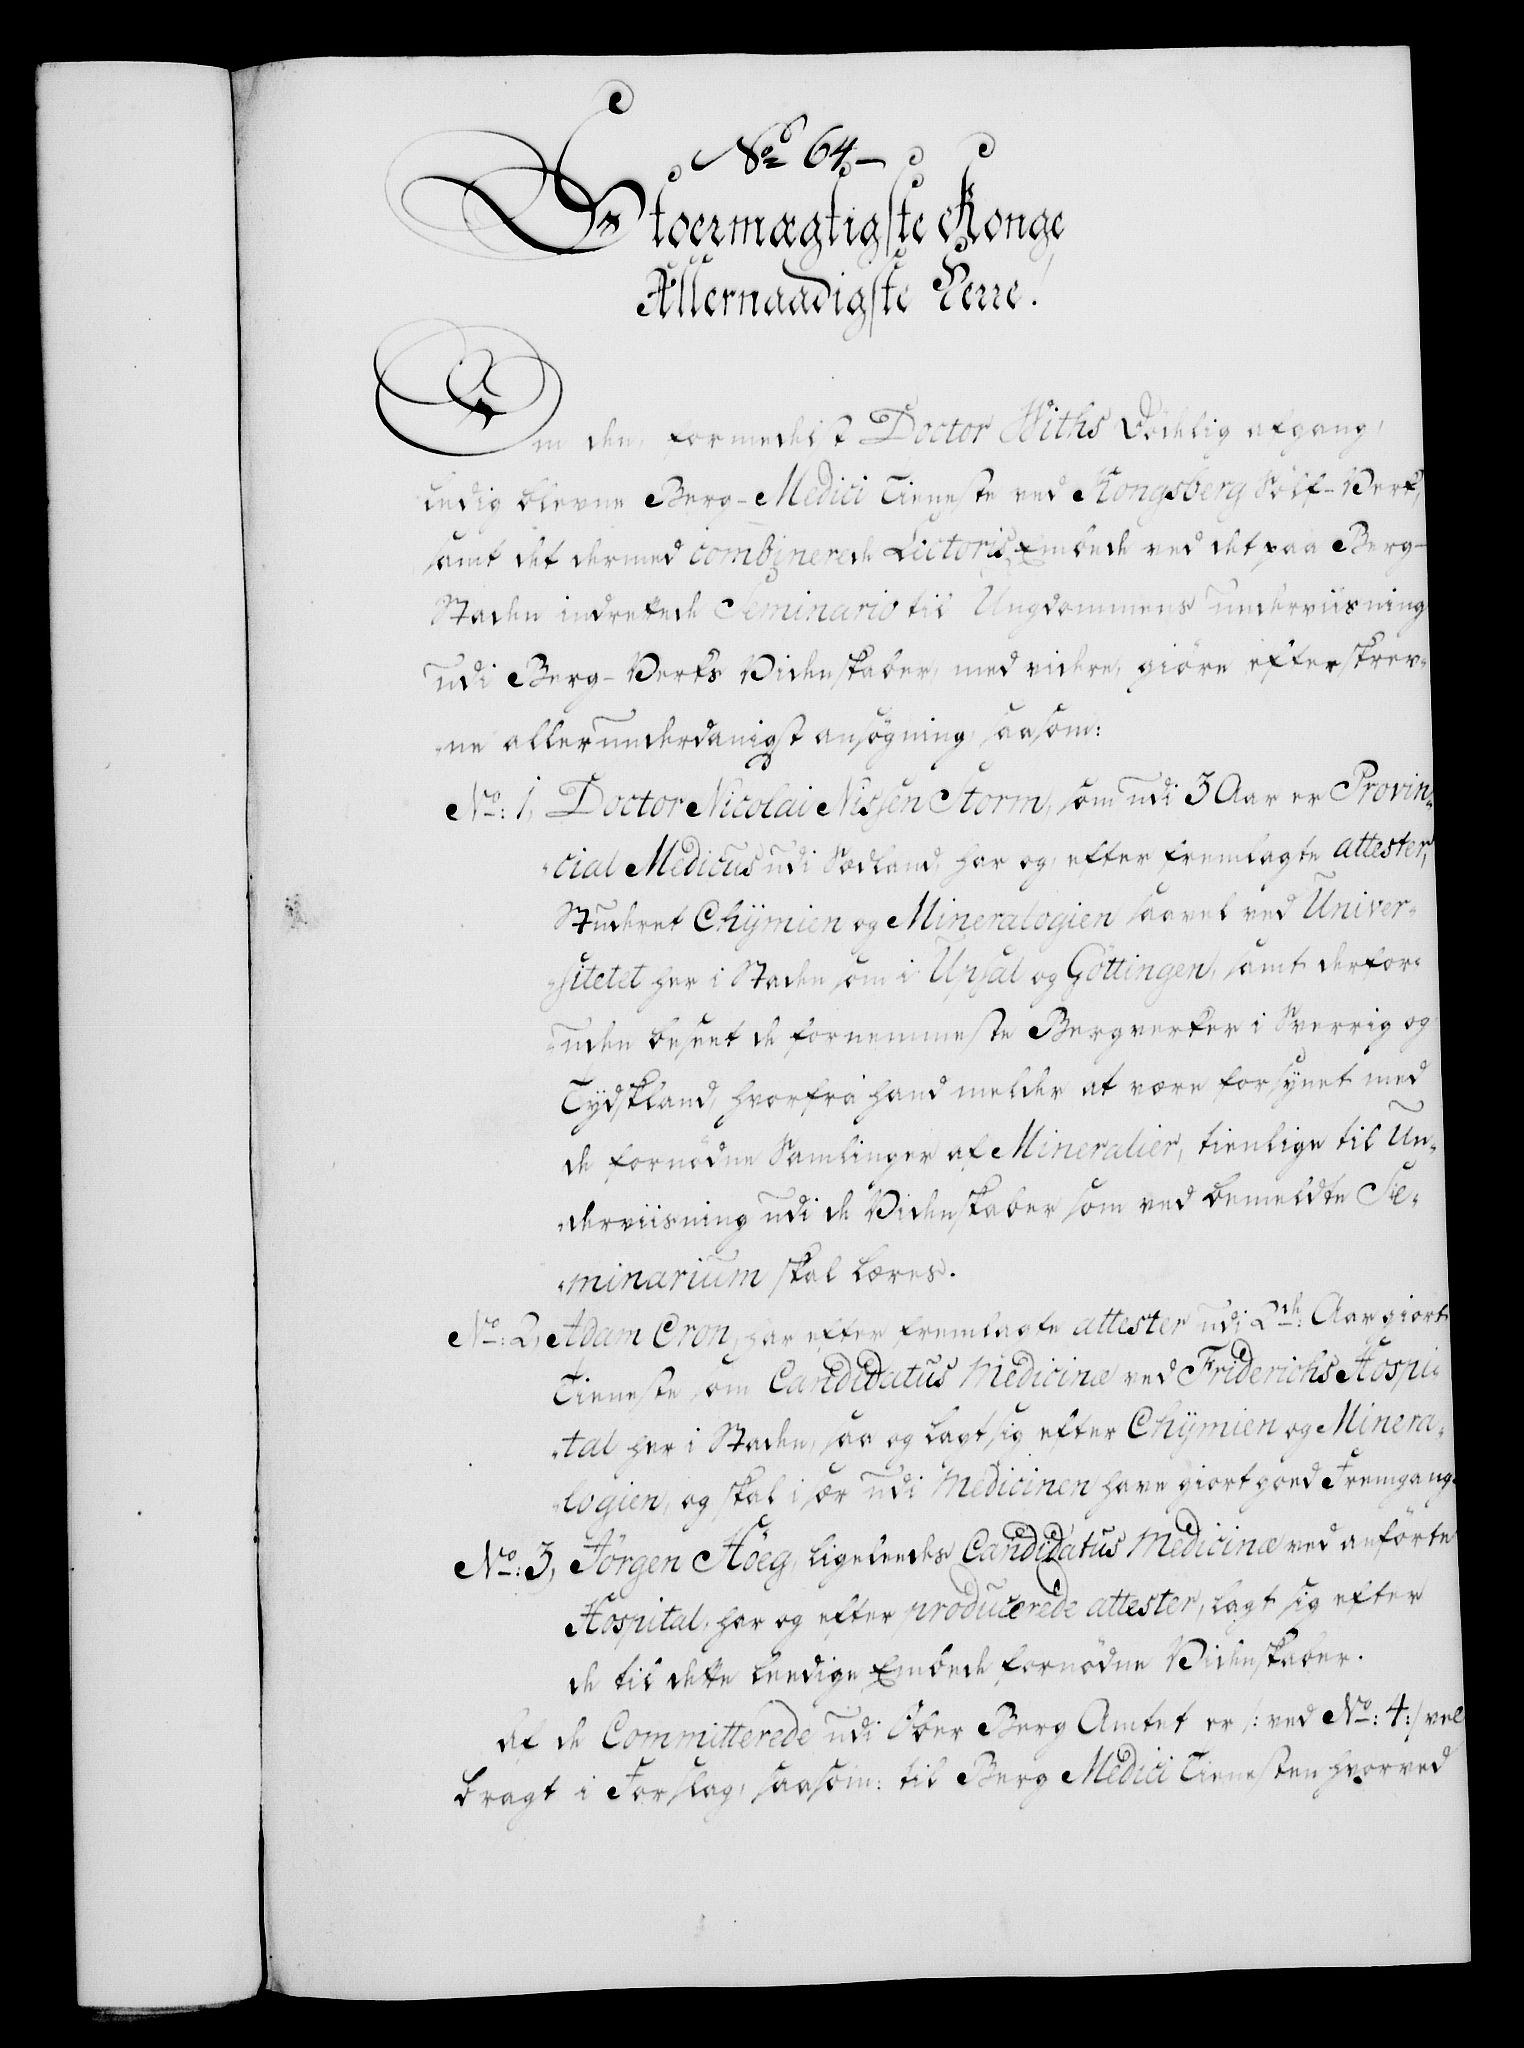 No 64
Stoermægtigste Konge
Allernaadigste Herre!
Om den, formedelst Doctor Withs Dödelig afgang,
ledig blevne Berg-Medici Tieneste ved Kongsberg Sölf-Verk,
samt det dermed combinerede Lectoris Embede ved det paa Berg-
Staden indrettede Seminario til Ungdommens underviisning
udi Berg-Verks Videnskaber, med videre, giöre efterskrev-
ne allerunderdanigst ansögning, saasom:
No: 1, Doctor Nicolai Nissen Storm, som udi 3 Aar er Provin-
cial Medicus udi Nordland, har og, efter fremlagte attester,
Studeret Chÿmien og Mineralogien saavel ved Univer-
sitetet her i Staden som i Upsal og Göttingen, samt derfor-
uden beseet de fornemmeste Bergverker i Sverrig og
Tydskland, hvorfra hand melder at være forsÿnet med
de fornödne Samlinger af Mineralier, tienlige til Un-
derviisning udi de Videnskaber som ved bemeldte Se-
minarium skal læres.
No: 2, Adam Cron, har efter fremlagte attester udi 2de: Aar giort
Tieneste som Candidatus Medicinæ ved Friderichs Hospi-
tal her i Staden, saa og lagt sig efter Chÿmien og Minera-
logien, og skal i sær udi Medicinen have giort goed Fremgang.
No: 3, Jörgen Höeg, ligeleedes Candidatus Medicinæ ved anförte
Hospital, har og efter producerede attester, lagt sig efter
de til dette leedige Embede fornödne Videnskaber.
Af de Committerede udi Ober Berg Amtet er /: ved No: 4:/ vel
bragt i Forslag, saasom: til Berg Medici Tienesten hvorved